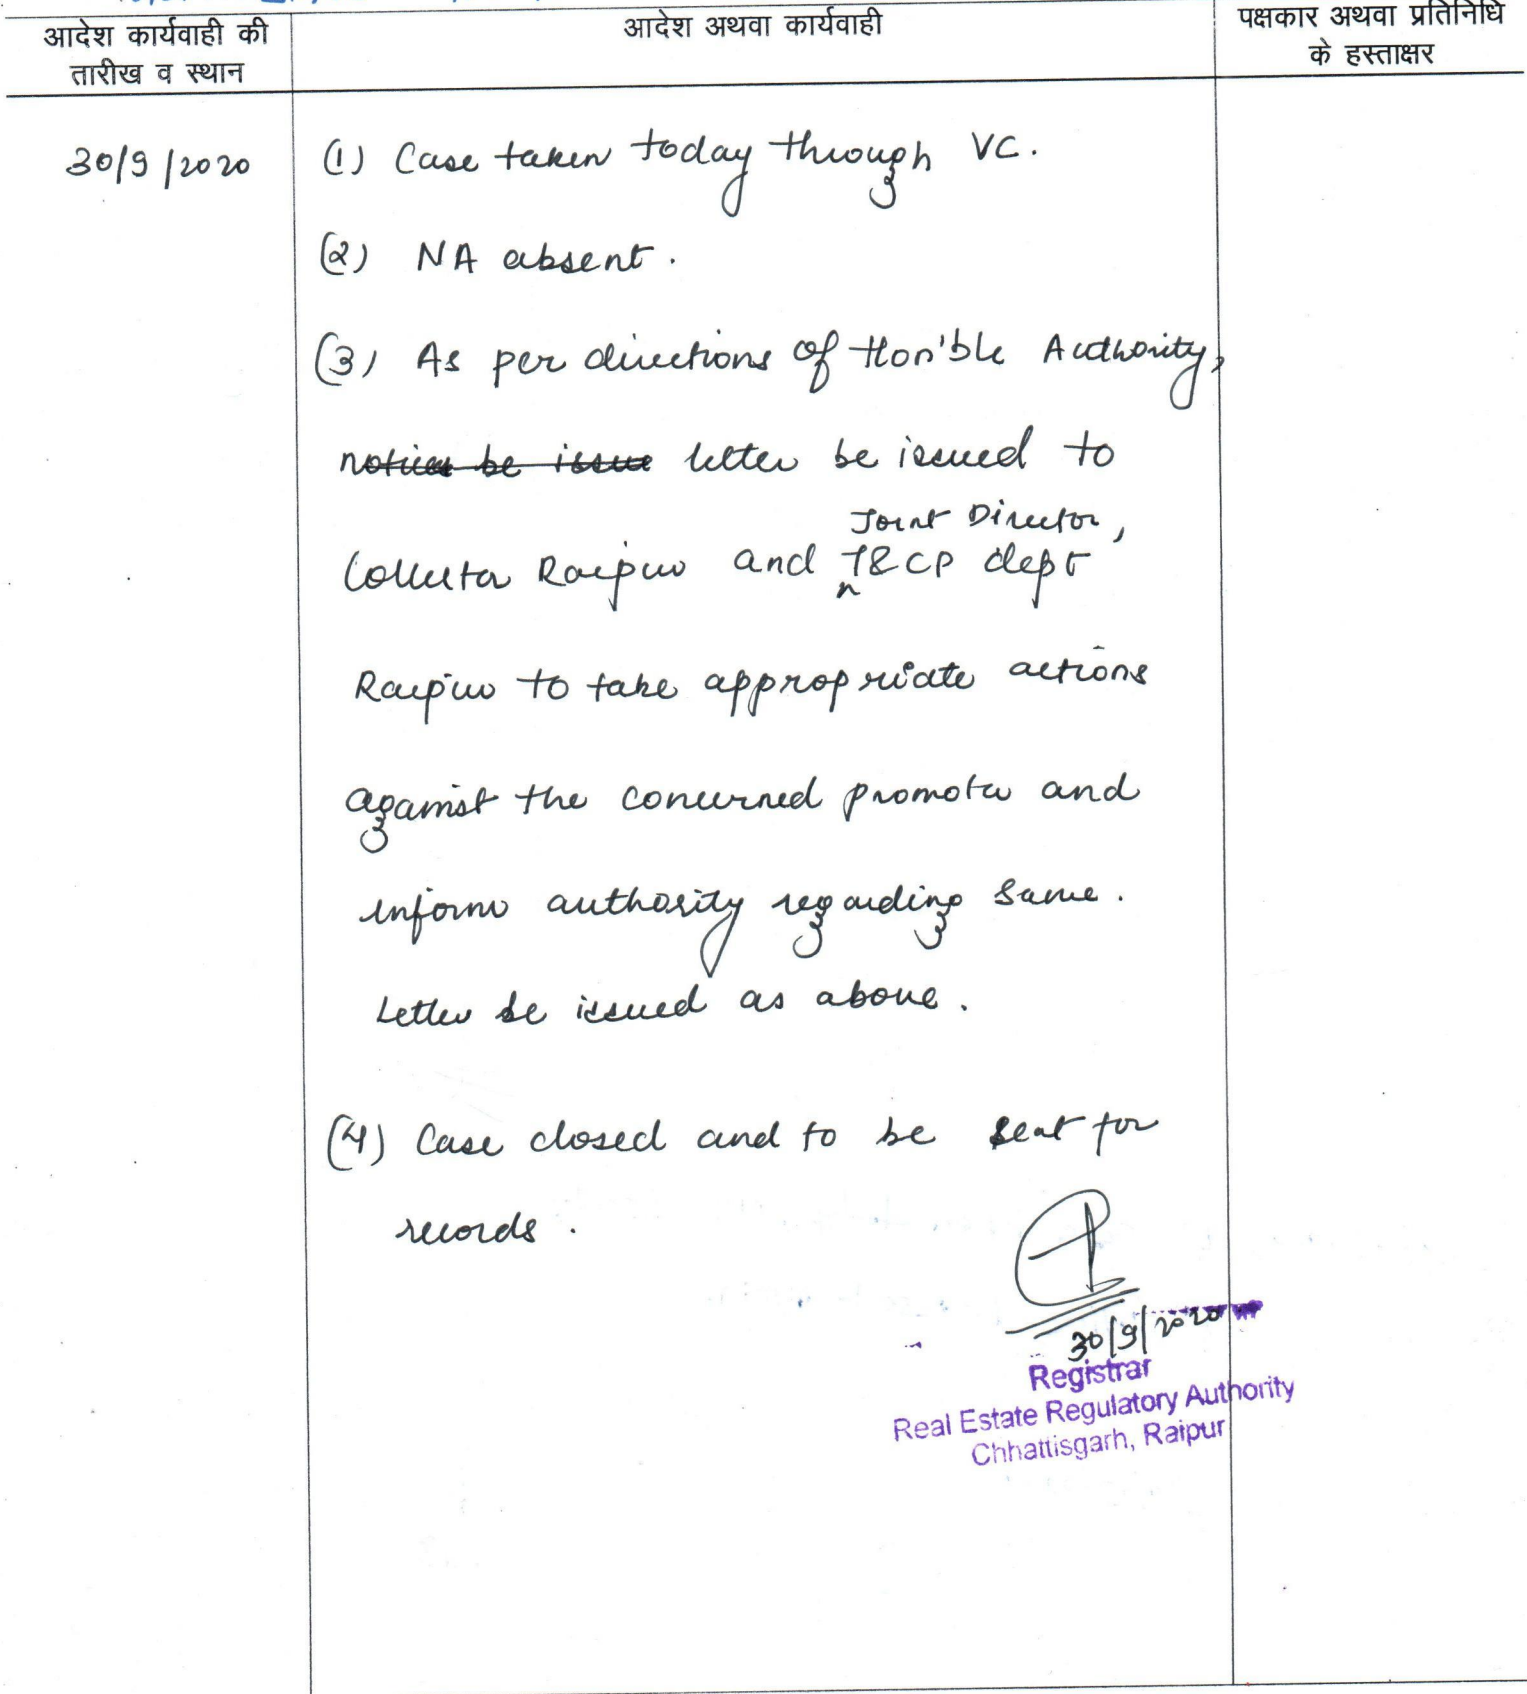 आदेश कार्यवाही की
तारीख व स्थान
आदेश अथवा कार्यवाही
पक्षकार अथवा प्रतिनिधि
के हस्ताक्षर
30/9/2020
(1) Case taken today through VC.
(2) NA absent.
(3) As per directions of Hon'ble Authority,
notices be issue letter be issued to
Joint Director,
Collector Raipur and T&CP dept
Raipur to take appropriate actions
against the concerned promoter and
inform authority regarding same.
Letter be issued as above.
(4) Case closed and to be sent for
records.
30/9/2020
Registrar
Real Estate Regulatory Authority
Chhattisgarh, Raipur